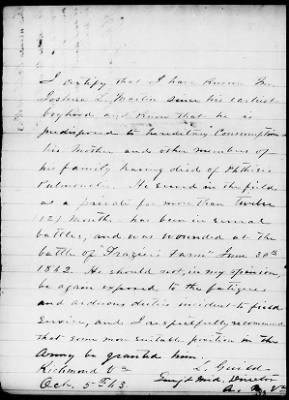 I certify that I have known Mr.
Joshua L. Martin since his earliest
boyhood and know that he is
predisposed to hereditary Consumption
his Mother and other members of
his family having died of Phthisis
Pulmonalis. He served in the field
as a private for more than twelve
(12) month - has been in several
battles, and was wounded at the
battle of "Frazier's Farm" June 30th
1862. He should not, in my opinion,
be again exposed to the fatigues
and arduous duties incident to field
service, and I respectfully recommend
that some more suitable position in the
Army be granted him.
Richmond Va L. Guild
Oct. 5th 63. Surg & Med. Director